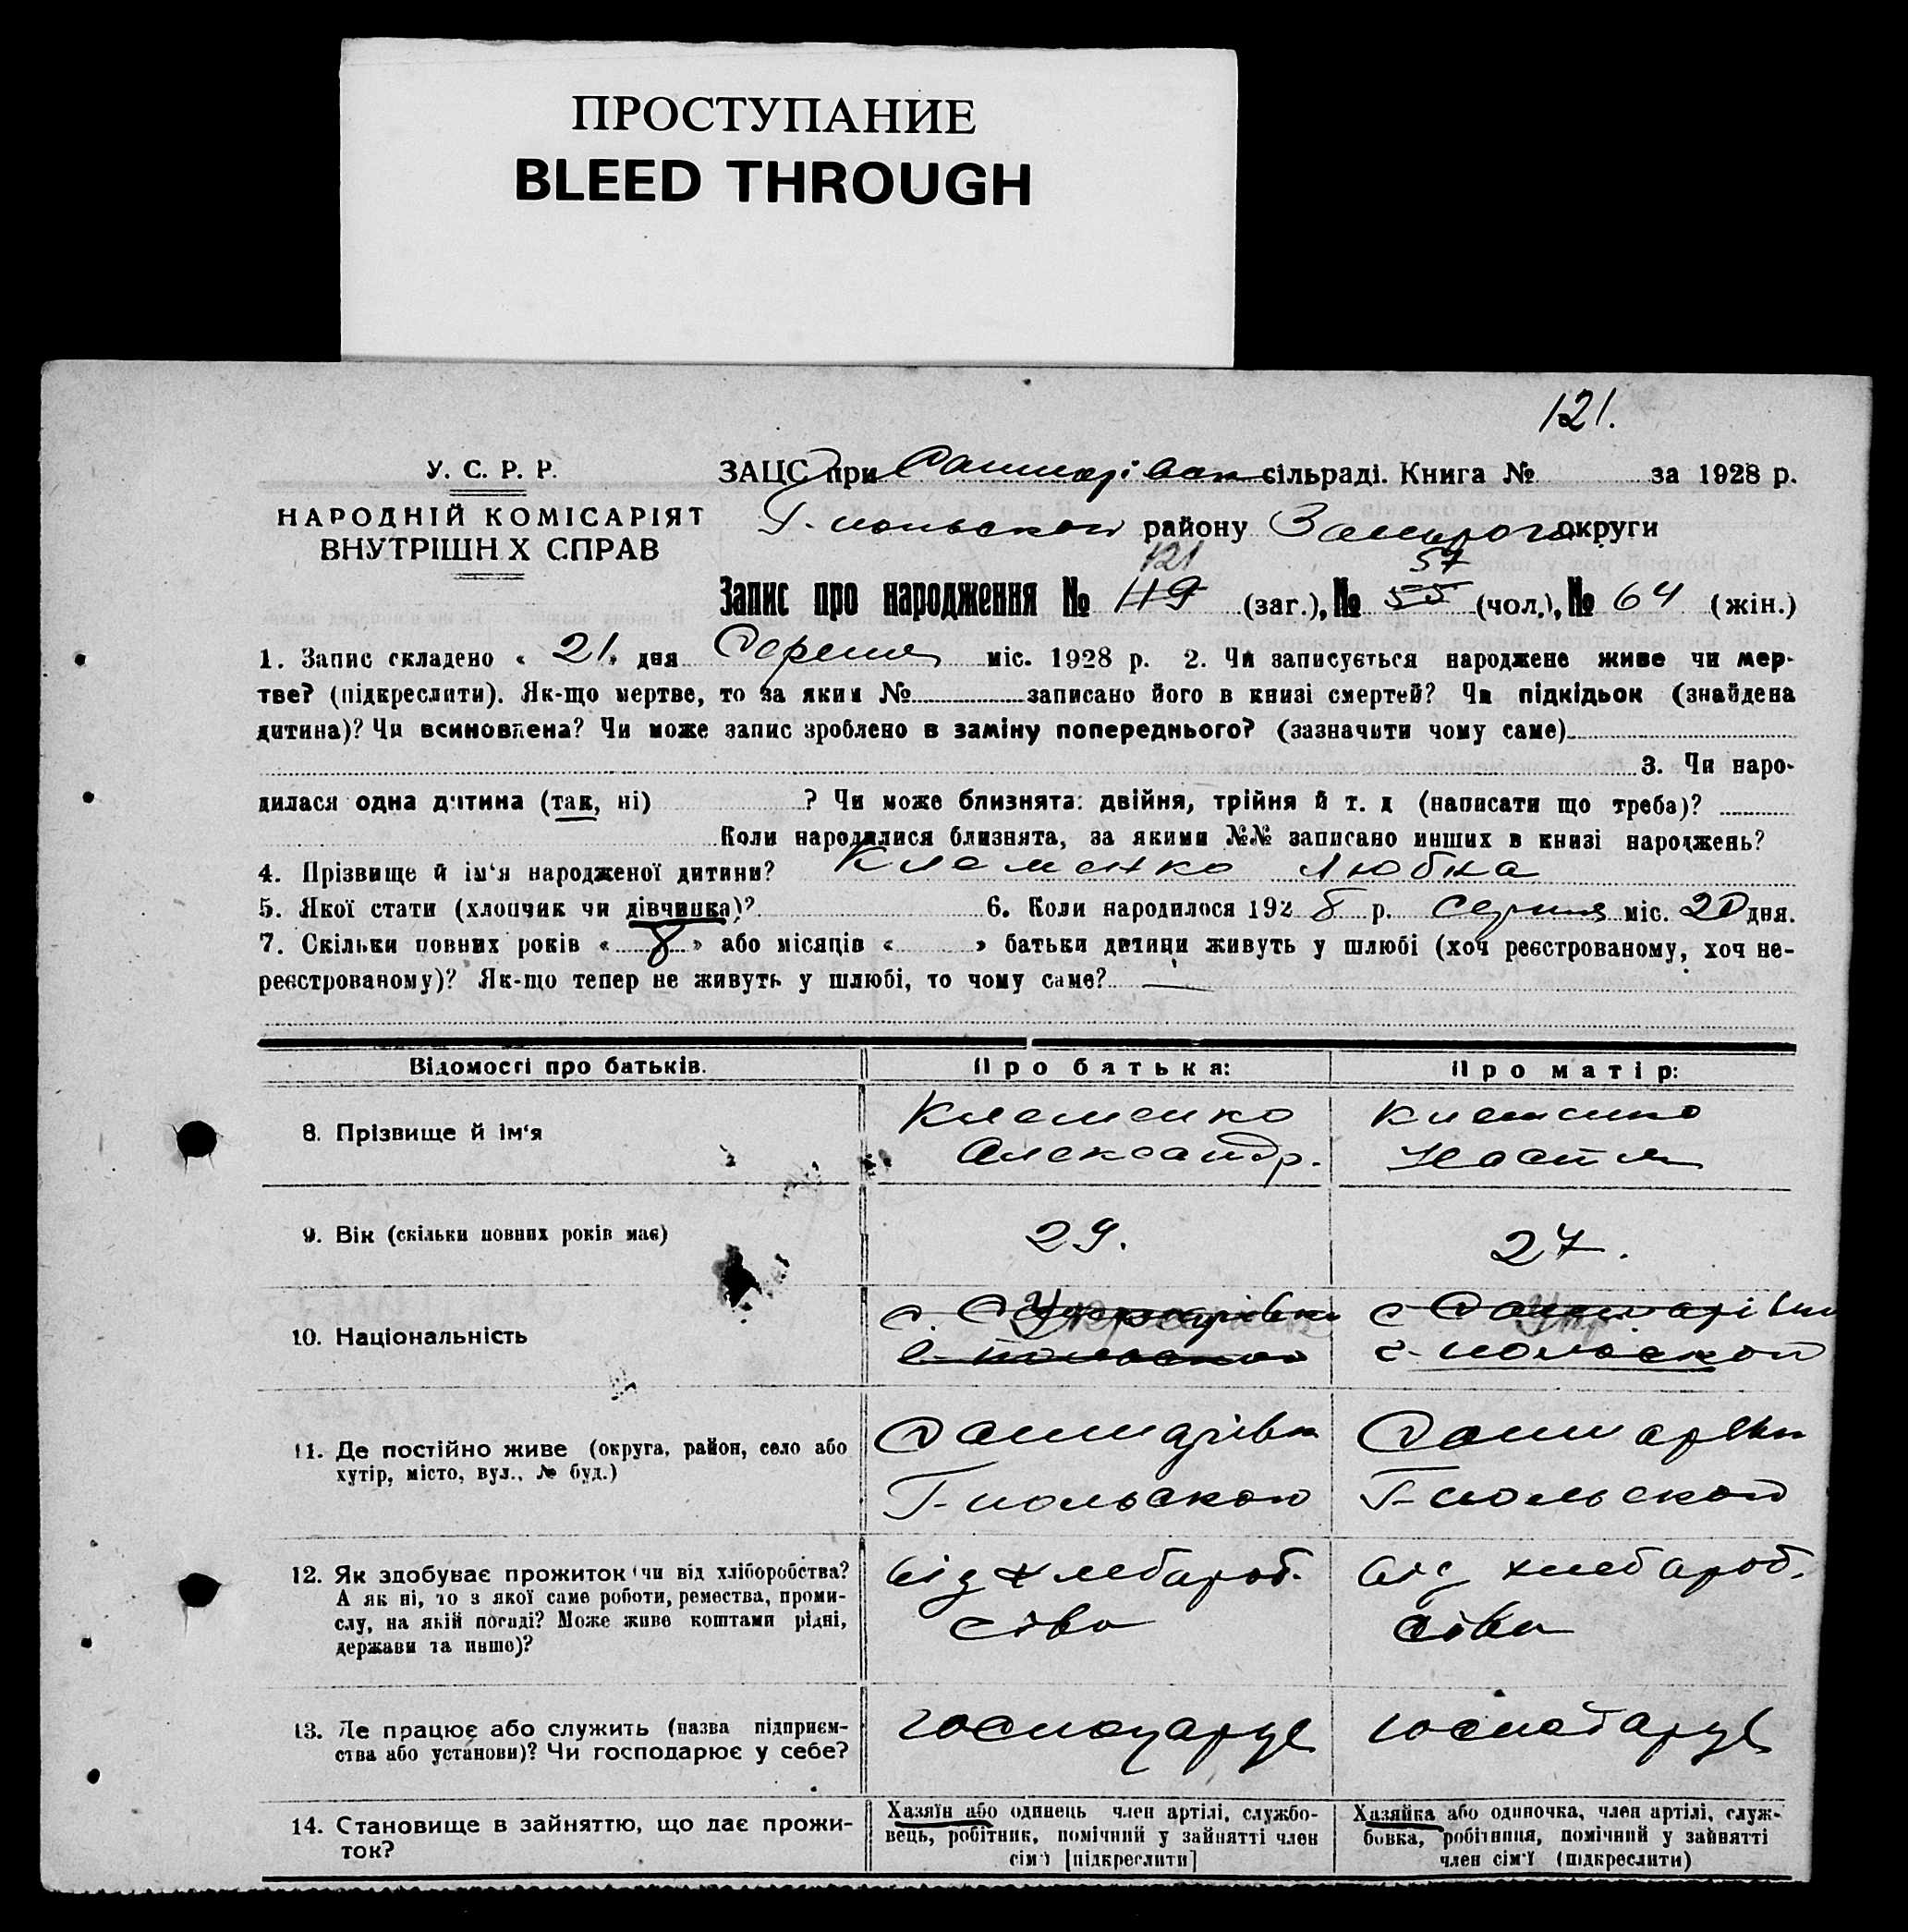 ПРОСТУПАНИЕ
BLEED THROUGH
121.
У. С. Р. Р.
НАРОДНІЙ КОМІСАРІЯТ
ВНУТРІШН Х СПРАВ
ЗАЦС при сільраді. Книга № за 1928 р.
району округи
121 57
Запис про народження № 119 (заг.), № 55 (чол.), № 64 (жін.)
1. Запис складено « 21 » дня міс. 1928 р. 2. Чи записується народжене живе чи мер-
тве? (підкреслити). Як-що мертве, то за яким № записано його в книзі смертей? Чи підкідьок (знайдена
дитина)? Чи всиновлена? Чи може запис зроблено в заміну попереднього? (зазначити чому саме)
3. Чи наро-
дилася одна дитина (так, ні) ? Чи може близнята: двійня, трійня й т. д (написати що треба)?
Коли народилися близнята, за якими №№ записано инших в книзі народжень?
4. Прізвище й ім'я народженої дитини? Клеменко Любка
5. Якої стати (хлопчик чи дівчинка)? 6. Коли народилося 192 8 р. серпня міс. 20 дня.
7. Скільки повних років « 8 » або місяців « » батьки дитини живуть у шлюбі (хоч реєстрованому, хоч не-
реєстрованому)? Як-що тепер не живуть у шлюбі, то чому саме? —
Відомості про батьків. Про батька: Про матір:
8. Прізвище й ім'я Клеменко Александр. Клеменко Настя
9. Вік (скільки повних років має) 29. 27.
10. Національність
11. Де постійно живе (округа, район, село або
хутір, місто, вул., № буд.)
Г-польского Г-польского
12. Як здобуває прожиток (чи від хліборобства?
А як ні, то з якої саме роботи, ремества, проми-
слу, на якій посаді? Може живе коштами рідні,
держави та инше)?
від хлебароб. від хлебароб.
ства ства
13. Де працює або служить (назва підприєм-
ства або установи)? Чи господарює у себе?
господарує господарує
14. Становище в зайняттю, що дає прожи-
ток?
Хазяїн або одинець член артілі, службо-
вець, робітник, помічний у зайнятті член
сім'ї [підкреслити]
Хазяйка або одиночка, член артілі, служ-
бовка, робітниця, помічний у зайнятті
член сім'ї (підкреслити)